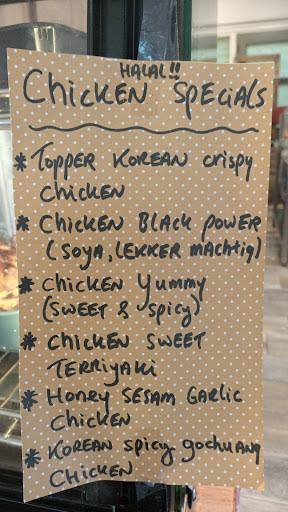 HALAL!!
CHICKEN SPECIALS
* TOPPER KOREAN crispy
CHICKEN
* CHICKEN BLACK POWER
(SOYA, LEKKER MACHTIG)
* CHICKEN YUMMY
(SWEET & SPICY)
* CHICKEN SWEET
TERRIYAKI
* HONEY SESAM GARLIC
CHICKEN
* KOREAN SPICY gochuang
CHICKEN